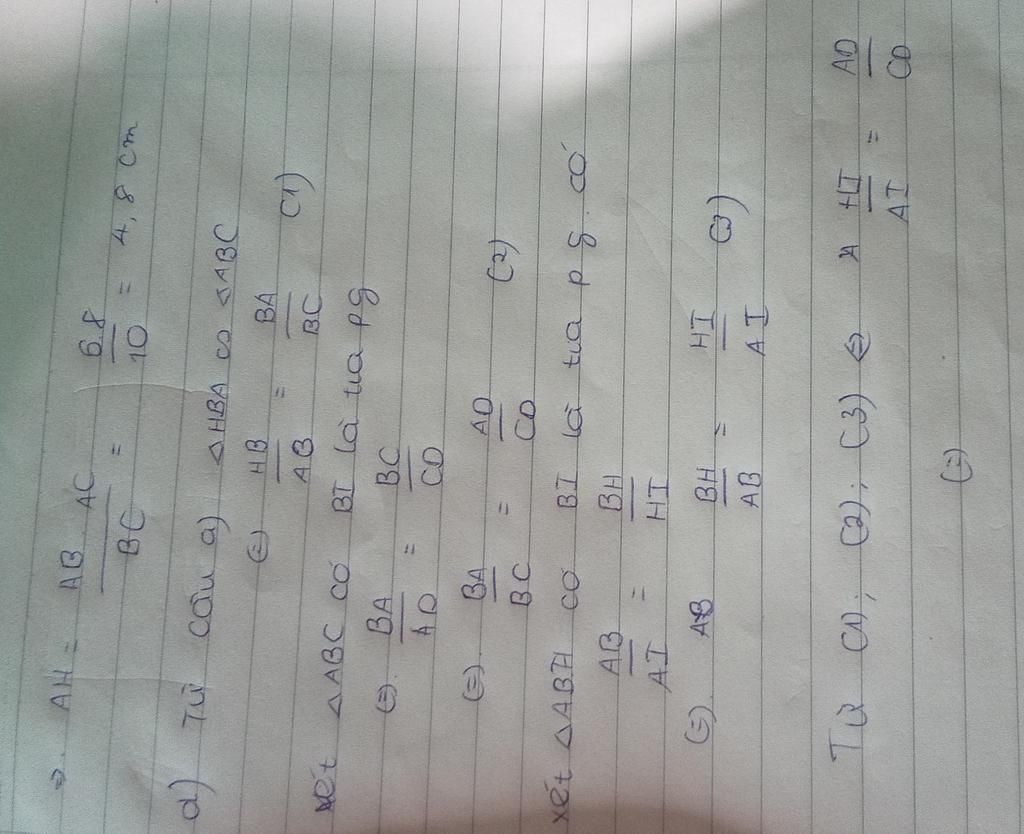 ⇒ AH = AB.AC/BC = 6.8/10 = 4,8 cm
d) Từ câu a) △HBA ∽ △ABC
(=) HB/AB = BA/BC (1)
xét △ABC có BI là tia pg
(=) BA/AD = BC/CD
(=) BA/BC = AD/CD (2)
xét △ABH có BI là tia pg có
AB/AI = BH/HI
(=) AB BH/AB = HI/AI (3)
Từ (1); (2); (3) ⇔ HI/AI = AD/CD
(=)